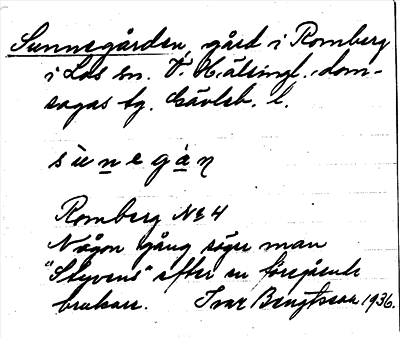 Sunnegården, gård i Romberg
i Los sn. V. Hälsingl. dom-
sagas tg. Gävleb. l.
sùnegá̀n
Romberg No 4
Någon gång säger man
"Styvens" efter en föregående
brukare. Ivar Bengtsson 1936.